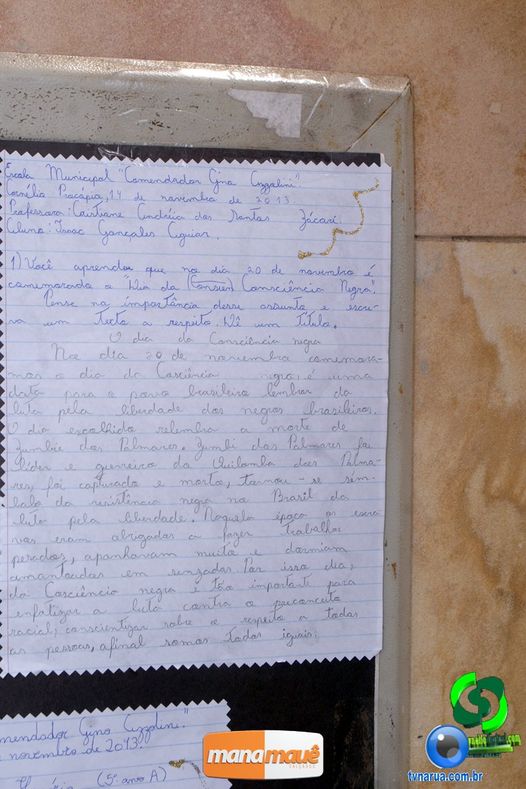 Escola Municipal "Comendador Gino Azzolini".
Cornélio Procópio, 14 de novembro de 2013
Professora: Cristiane dos Santos Zácari
Aluno: Isaac Gonçales Aguiar.
1) Você aprendeu que no dia 20 de novembro é
comemorado o "Dia da (Conscien) Consciência Negra".
Pense na importância desse assunto e escre-
va um texto a respeito. Dê um título.
O dia da Consciência negra
No dia 20 de novembro comemora-
mos o dia da Cosciência negra, é uma
data para o povo brasileiro lembrar da
luta pela liberdade dos negros brasileiros.
O dia escolhido relembra a morte de
Zumbie dos Palmares. Zumbi dos Palmares foi
líder e guerreiro do Quilombo dos Palma-
res, foi capturado e morto, tornou-se sím-
bolo da resistência negra no Brasil da
luta pela liberdade. Naquela época os escra-
vos eram obrigados a fazer trabalhos
pesados, apanhavam muito e dormiam
amontoados em senzalas. Por isso dia,
da Cosciência negra é tão importante para
enfatizar a luta contra o preconceito
racial, conscientizar sobre o respeito a todas
as pessoas, afinal somos todos iguais.
mendador Gino Azzolini."
novembro de 2013.
(5º ano A)
manamauê
CALÇADOS
tvnarua.com.br